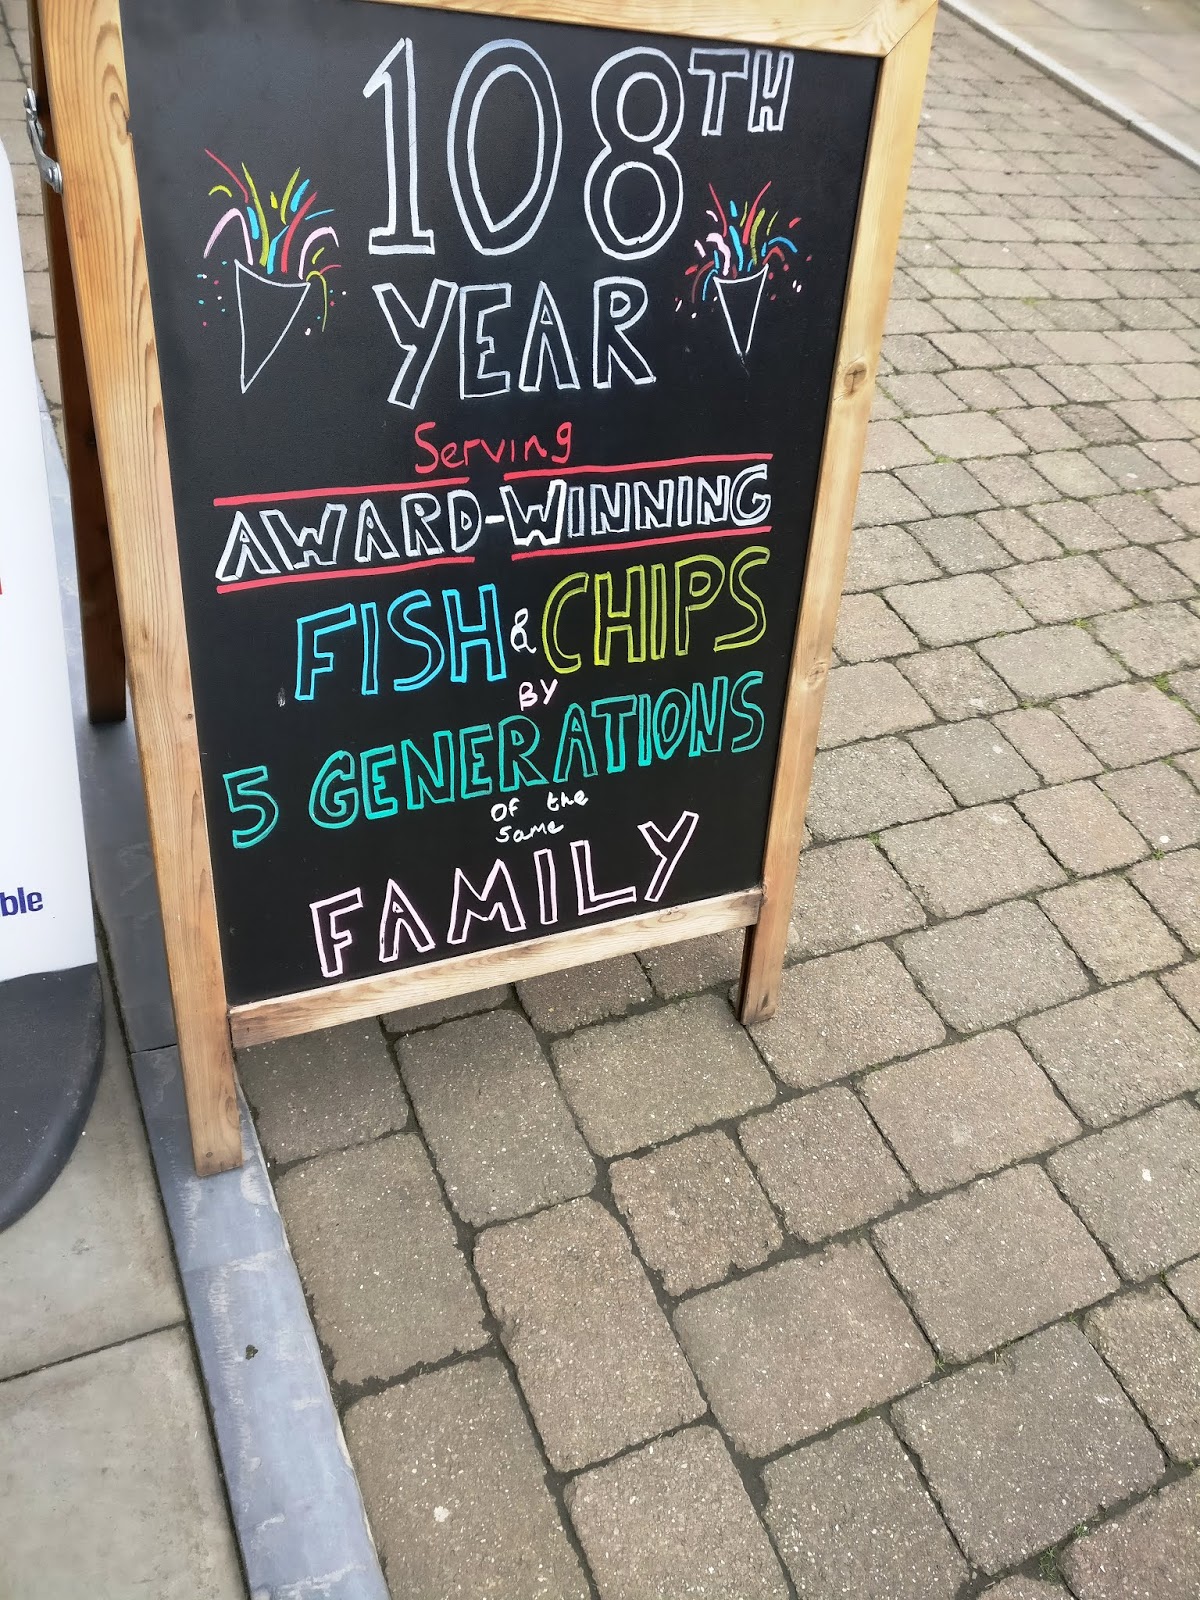 108TH
YEAR
Serving
AWARD-WINNING
FISH & CHIPS
BY
5 GENERATIONS
OF the
Same
FAMILY
ble